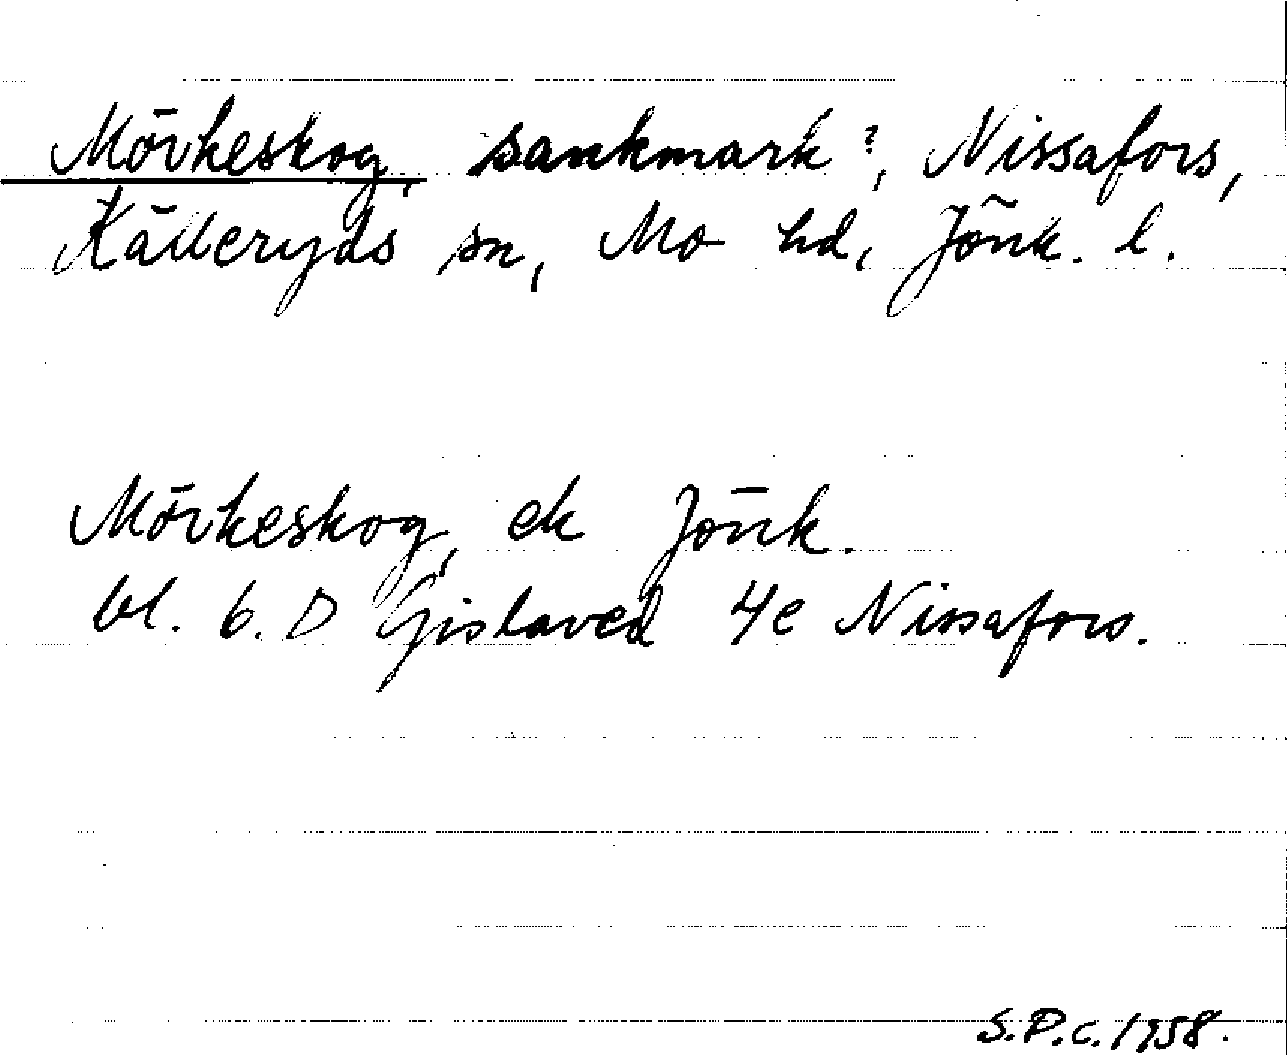 Mörkeskog, sankmark?, Nissafors,
Källeryds sn, Mo hd, Jönk. l.
Mörkeskog, ek Jönk.
bl. 6. D Gislaved 4e Nissafors.
S.P.c. 1958.